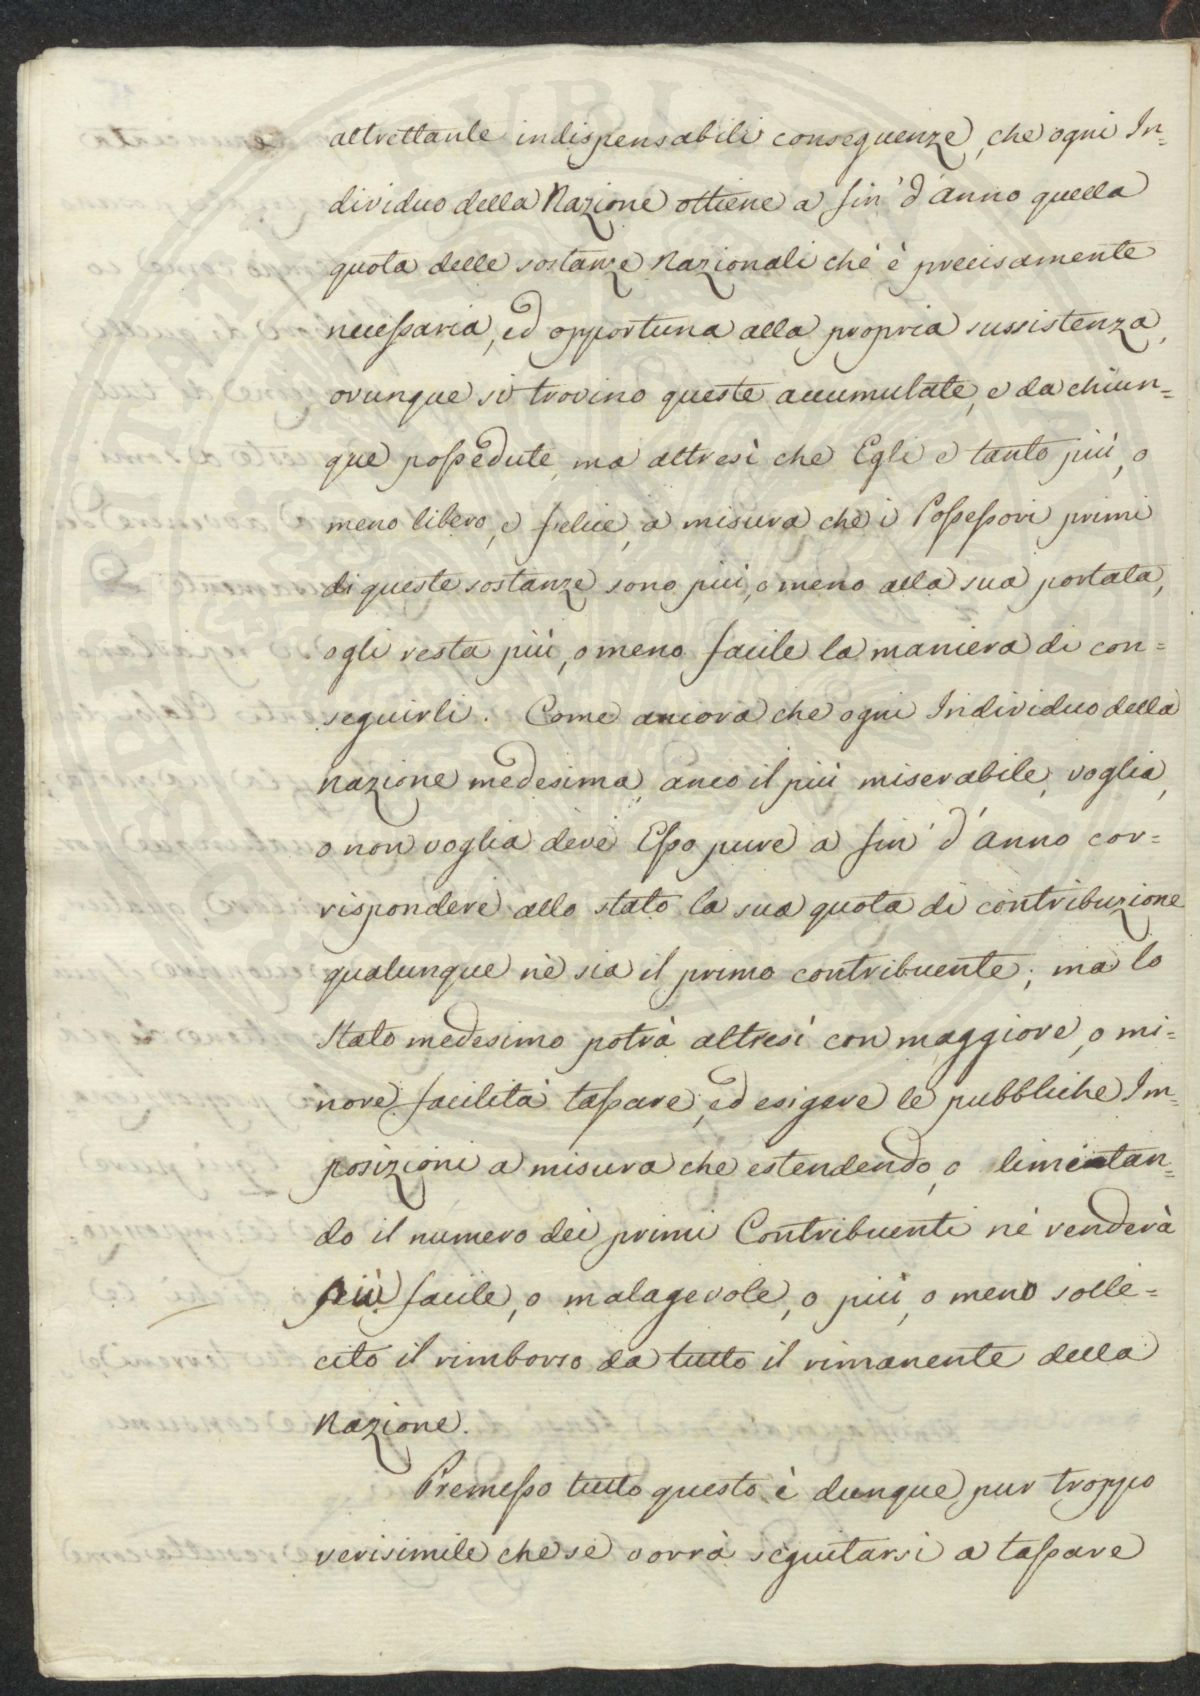 altrettante indispensabili conseguenze, che ogni In=
dividuo della Nazione ottiene a fin' d'anno quella
quota delle sostanze Nazionali che è precisamente
necessaria, ed opportuna alla propria sussistenza,
ovunque si trovino queste accumulate, e da chiun=
que possedute, ma altresì che Egli è tanto più, o
meno libero, e felice, a misura che i Possessori primi
di queste sostanze sono più, o meno alla sua portata,
o gli resta più, o meno facile la maniera di con=
seguirli. Come ancora che ogni Individuo della
Nazione medesima, anco il più miserabile, voglia,
o non voglia deve Esso pure a fin' d'anno cor=
rispondere allo stato la sua quota di contribuzione
qualunque nè sia il primo contribuente; ma lo
Stato medesimo potrà altresì con maggiore, o mi=
nore facilità tassare, ed esigere le pubbliche Im=
posizioni a misura che estendendo, o limitan=
do il numero dei primi Contribuenti nè renderà
più facile, o malagevole, o più, o meno solle=
cito il rimborso da tutto il rimanente della
Nazione.
Premesso tutto questo è dunque pur troppo
verisimile che se vorrà seguitarsi a tassare